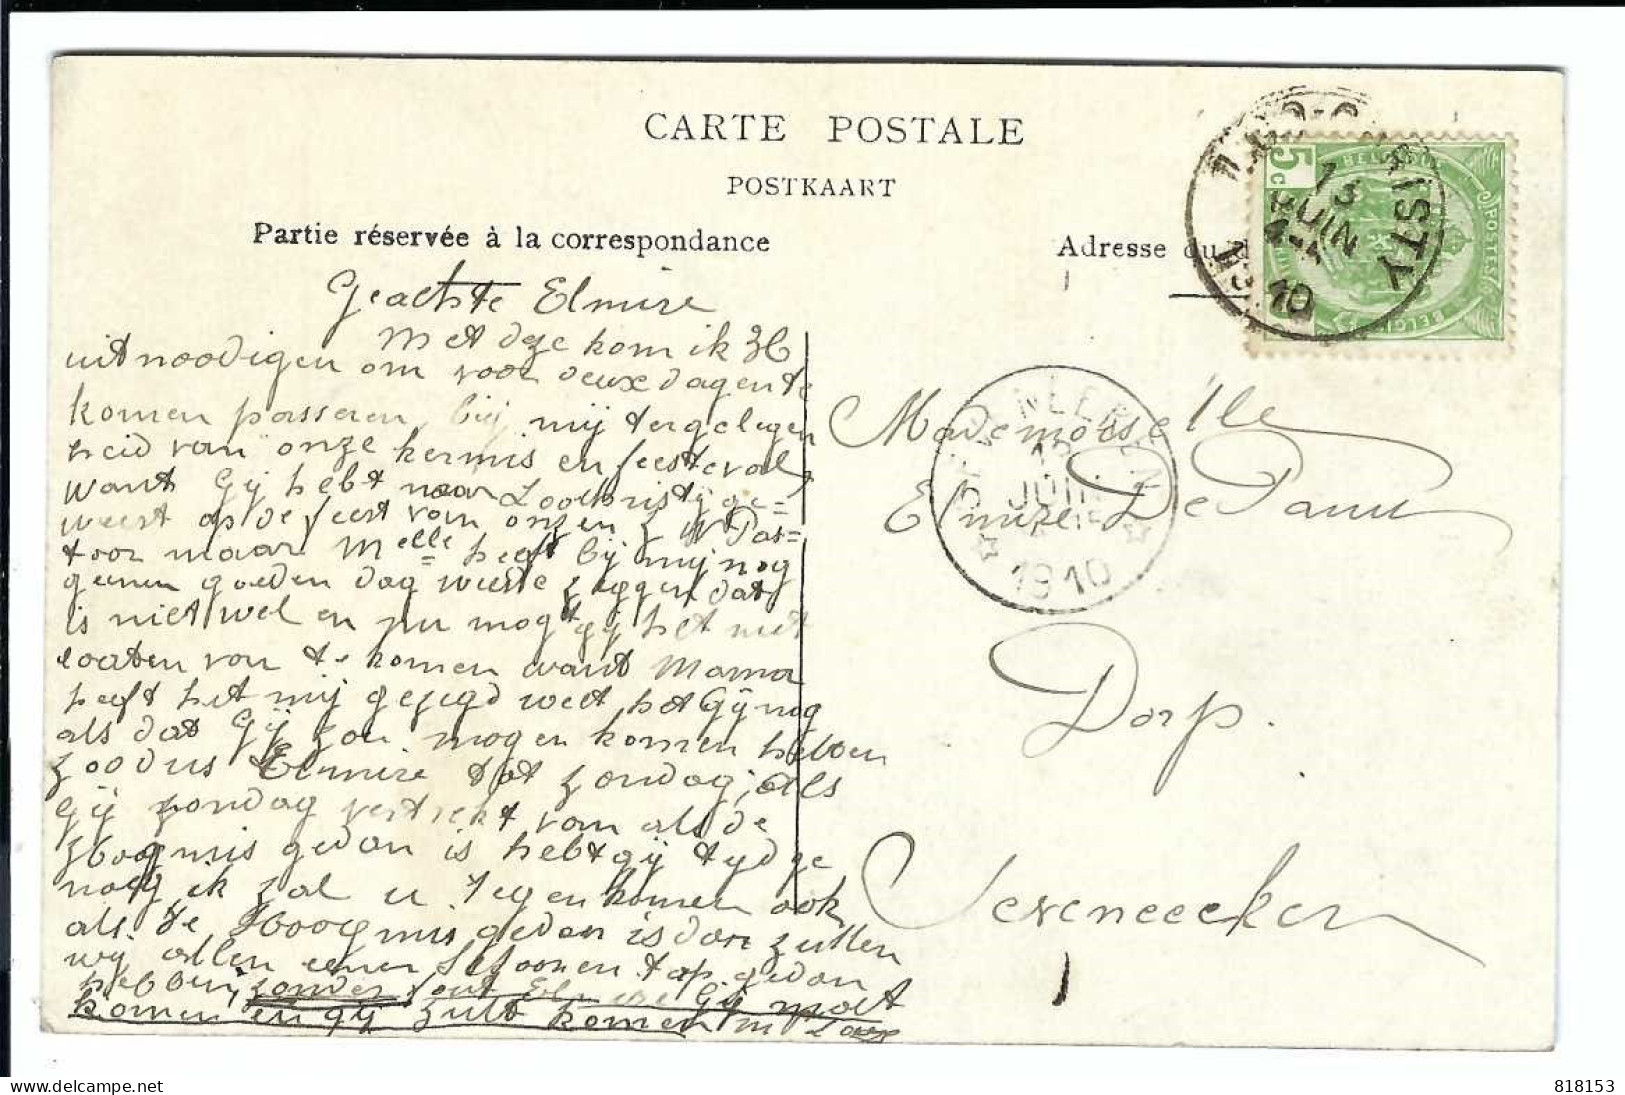 CARTE POSTALE
POSTKAART
Partie réservée à la correspondance
Adresse du d
Geachte Elmire
Met deze kom ik
uitnoodigen om voor deux dagen te
komen passeren bij mij ter gelegen
heid van onze kermis en feesteval
want Gij hebt naar Loochristÿ ge=
weest op de feest van onzen Z W Pas=
toor maar Melle heeft bij mij nog
geenen goeden dag weerd zeggen dat
is niet wel en nu mogt gij het niet
laaten van te komen want Mama
heeft het mij gezegd weet het Gÿ nog
als dat Gÿ zou mogen komen heben
zoodus Elmire tot zondag, Als
Gÿ zondag vertrekt van als de
Hoogmis gedan is hebt gÿ tyd ge
noeg ik zal u tegen komen ook
als de Hoogmis gedan is dan zullen
wij allen eenen schoonen tap gedan
heben, zonder out Elmire Gij moet
komen en gÿ zult komen
Mademoiselle
Elmire De Pauw
Dorp.
Seveneecken
5 C
BELGIQUE
POSTES
BELGIË
LOO-CHRISTY
13
JUIN
10
SEVENEEKEN
13
JUIN
1910
818153